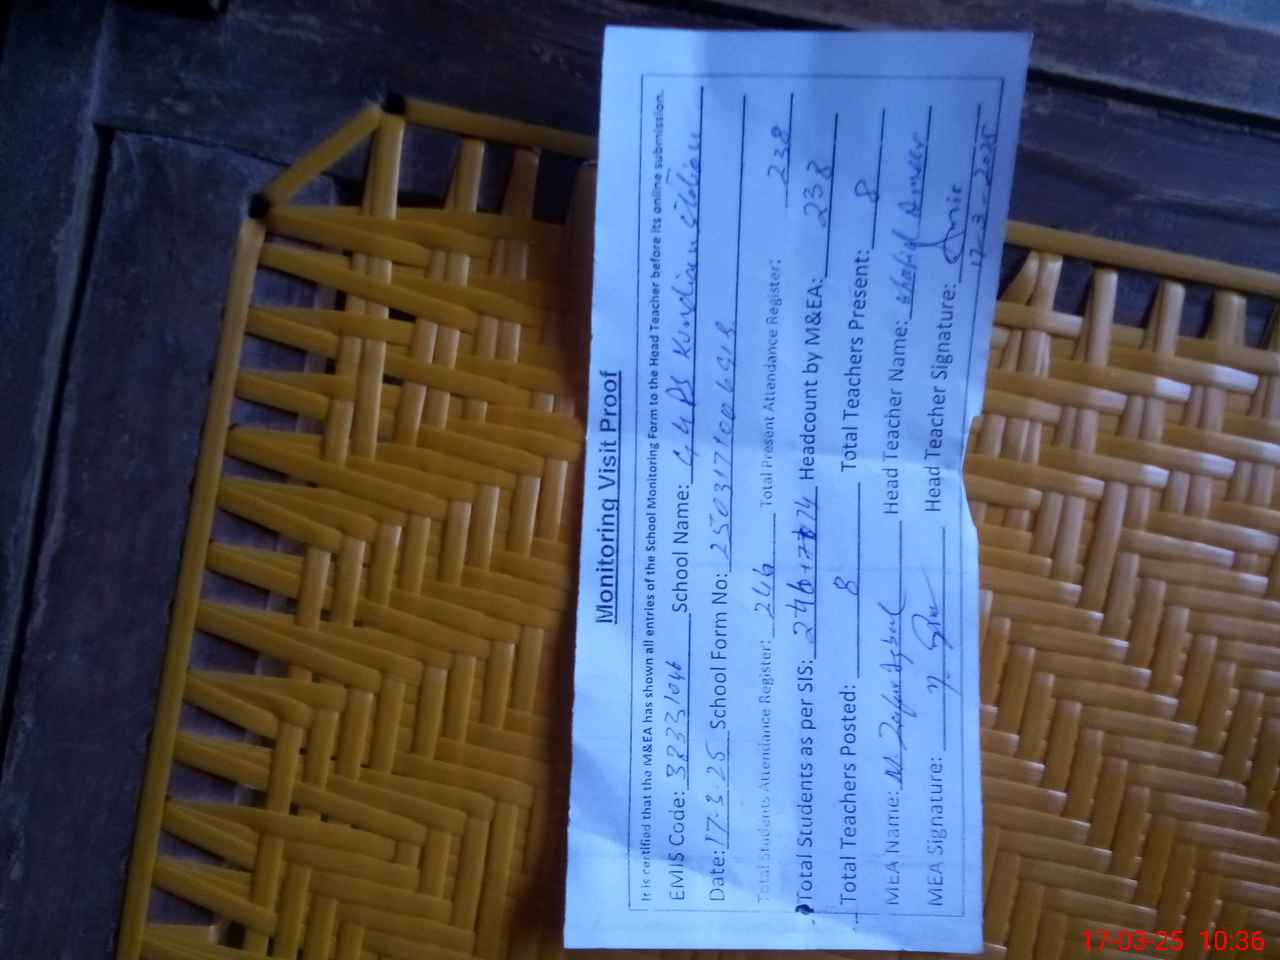 Monitoring Visit Proof
It is certified that the M&EA has shown all entries of the School Monitoring Form to the Head Teacher before its online submission.
EMIS Code: 38331046 School Name:
Date: 17-3-25 School Form No:
Total Students Attendance Register: 246 Total Present Attendance Register: 238
Total Students as per SIS: Headcount by M&EA: 238
Total Teachers Posted: 8 Total Teachers Present: 8
MEA Name: Head Teacher Name:
MEA Signature: Head Teacher Signature: Amir
17-3-2025
17-03-25 10:36